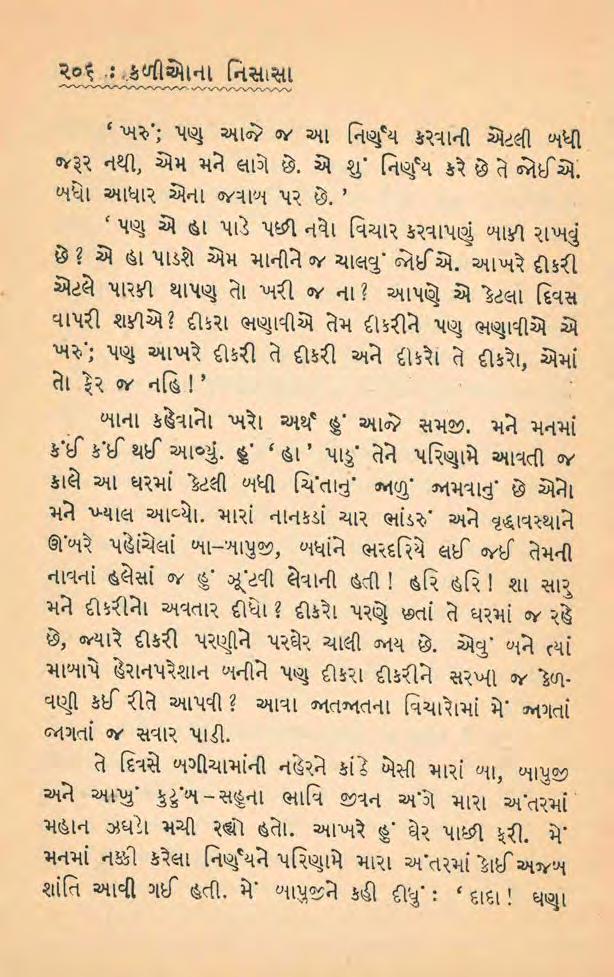 ૨૦૬ : કળીઓના નિસાસા
‘ ખરું; પણ આજે જ આ નિર્ણય કરવાની એટલી બધી
જરૂર નથી, એમ મને લાગે છે. એ શું નિર્ણય કરે છે તે જોઈએ.
બધો આધાર એના જવાબ પર છે. ’
‘ પણ એ હા પાડે પછી નવો વિચાર કરવાપણું બાકી રાખવું
છે ? એ હા પાડશે એમ માનીને જ ચાલવું જોઈએ. આખરે દીકરી
એટલે પારકી થાપણ તો ખરી જ ના ? આપણે એ કેટલા દિવસ
વાપરી શકીએ ? દીકરા ભણાવીએ તેમ દીકરીને પણ ભણાવીએ એ
ખરું; પણ આખરે દીકરી તે દીકરી અને દીકરો તે દીકરો, એમાં
તો ફેર જ નહિ ! ’
બાના કહેવાનો ખરો અર્થ હું આજે સમજી. મને મનમાં
કંઈ કંઈ થઈ આવ્યું. હું ‘ હા ’ પાડું તેને પરિણામે આવતી જ
કાલે આ ઘરમાં કેટલી બધી ચિંતાનું જાળું જામવાનું છે એનો
મને ખ્યાલ આવ્યો. મારાં નાનકડાં ચાર ભાંડરું અને વૃદ્ધાવસ્થાને
ઊંબરે પહોંચેલાં બા–બાપુજી, બધાંને ભરદરિયે લઈ જઈ તેમની
નાવનાં હલેસાં જ હું ઝૂંટવી લેવાની હતી ! હરિ હરિ ! શા સારુ
મને દીકરીનો અવતાર દીધો ? દીકરો પરણે છતાં તે ઘરમાં જ રહે
છે, જ્યારે દીકરી પરણીને પરઘેર ચાલી જાય છે. એવું બને ત્યાં
માબાપે હેરાનપરેશાન બનીને પણ દીકરા દીકરીને સરખી જ કેળ-
વણી કઈ રીતે આપવી ? આવા જાતજાતના વિચારોમાં મેં જાગતાં
જાગતાં જ સવાર પાડી.
તે દિવસે બગીચામાંની નહેરને કાંઠે બેસી મારાં બા, બાપુજી
અને આખું કુટુંબ – સહુના ભાવિ જીવન અંગે મારા અંતરમાં
મહાન ઝઘડો મચી રહ્યો હતો. આખરે હું ઘેર પાછી ફરી. મેં
મનમાં નક્કી કરેલા નિર્ણયને પરિણામે મારા અંતરમાં કોઈ અજબ
શાંતિ આવી ગઈ હતી. મેં બાપુજીને કહી દીધું : ‘ દાદા ! ઘણા